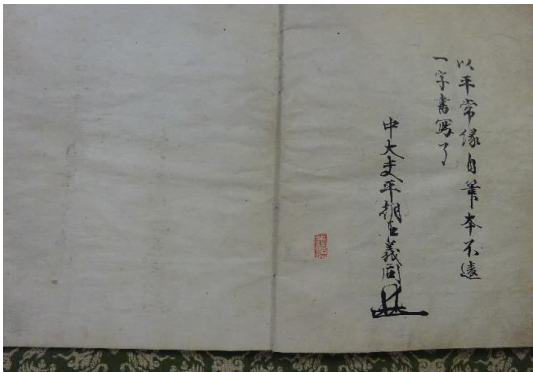 以平常縁自筆本不違
一字書写了
中大夫平朝臣義図